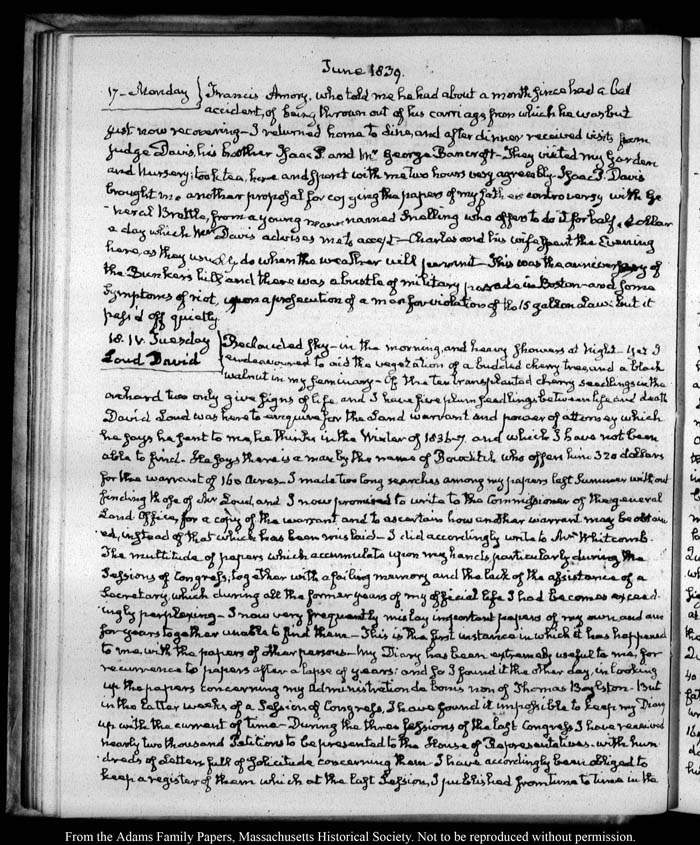 June 1839.
17 – Monday } Francis Amory, who told me he had about a month since had a bad
accident, of being thrown out of his carriage from which he was but
just now recovering – I returned home to dine, and after dinner received visits from
Judge Davis, his brother Isaac P. and Mr George Bancroft – They visited my Garden
and Nursery; took tea, here and spent with me two hours very agreeably – Isaac P. Davis
brought me another proposal for copying the papers of my father's controversy with Ge
neral Brattle, from a young man named Snelling who offers to do it for half a dollar
a day which Mr Davis advises me to accept – Charles and his wife spent the Evening
here, as they usually do when the weather will permit – This was the anniversary of
the Bunkers hill, and there was a bustle of military parade in Boston – and some
symptoms of riot, upon a prosecution of a man for violation of the 15 gallon Law: but it
pass'd off quietly
18. IV. Tuesday } Beclouded sky – in the morning, and heavy showers at Night – Yet I
Loud David endeavoured to aid the vegetation of a budded cherry tree, and a black
walnut in my Seminary – Of the ten transplanted cherry seedlings in the
orchard two only give signs of life, and I have five plum seedlings between life and death
David Loud was here to enquire for the Land warrant and power of attorney which
he says he sent to me, he thinks in the Winter of 1836–7, and which I have not been
able to find. He says there is a man by the name of Bowditch who offers him 320 dollars
for the warrant of 160 Acres. I made two long searches among my papers last Summer without
finding those of Mr Loud, and I now promised to write to the Commissioner of the general
Land Office, for a copy of the warrant, and to ascertain how another warrant may be obtain
ed, instead of that which has been mislaid – I did accordingly write to Mr Whitcomb.
The multitude of papers which accumulate upon my hands, particularly during the
Sessions of Congress, together with a failing memory and the lack of the assistance of a
Secretary, which during all the former years of my official life I had becomes exceed
ingly perplexing – I now very frequently mislay important papers of my own, and am
for years together unable to find them – This is the first instance in which it has happened
to me, with the papers of other persons – My Diary has been extremely useful to me, for
recurrence to papers after a lapse of years: and so I found it the other day, in looking
up the papers concerning my Administration de bonis non of Thomas Boylston. But
in the latter weeks of a Session of Congress, I have found it impossible to keep my Diary
up with the current of time – During the three Sessions of the last Congress I have received
nearly two thousand Petitions to be presented to the House of Representatives, with hun
dreds of Letters full of solicitude concerning them – I have accordingly been obliged to
keep a register of them which at the last Session, I published from time to time in the
From the Adams Family Papers, Massachusetts Historical Society. Not to be reproduced without permission.